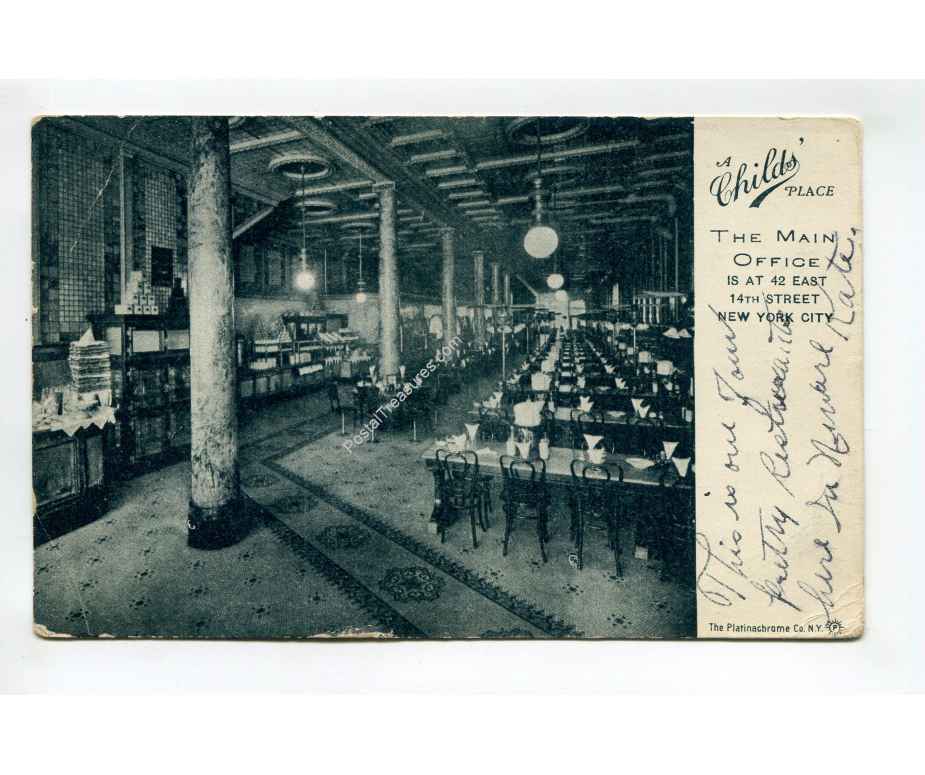 A
Childs'
PLACE
THE MAIN
OFFICE
IS AT 42 EAST
14TH STREET
NEW YORK CITY
This is one Your
pretty restraunts
here In Newark Kate.
The Platinachrome Co. N.Y. P
PostalTreasures.com